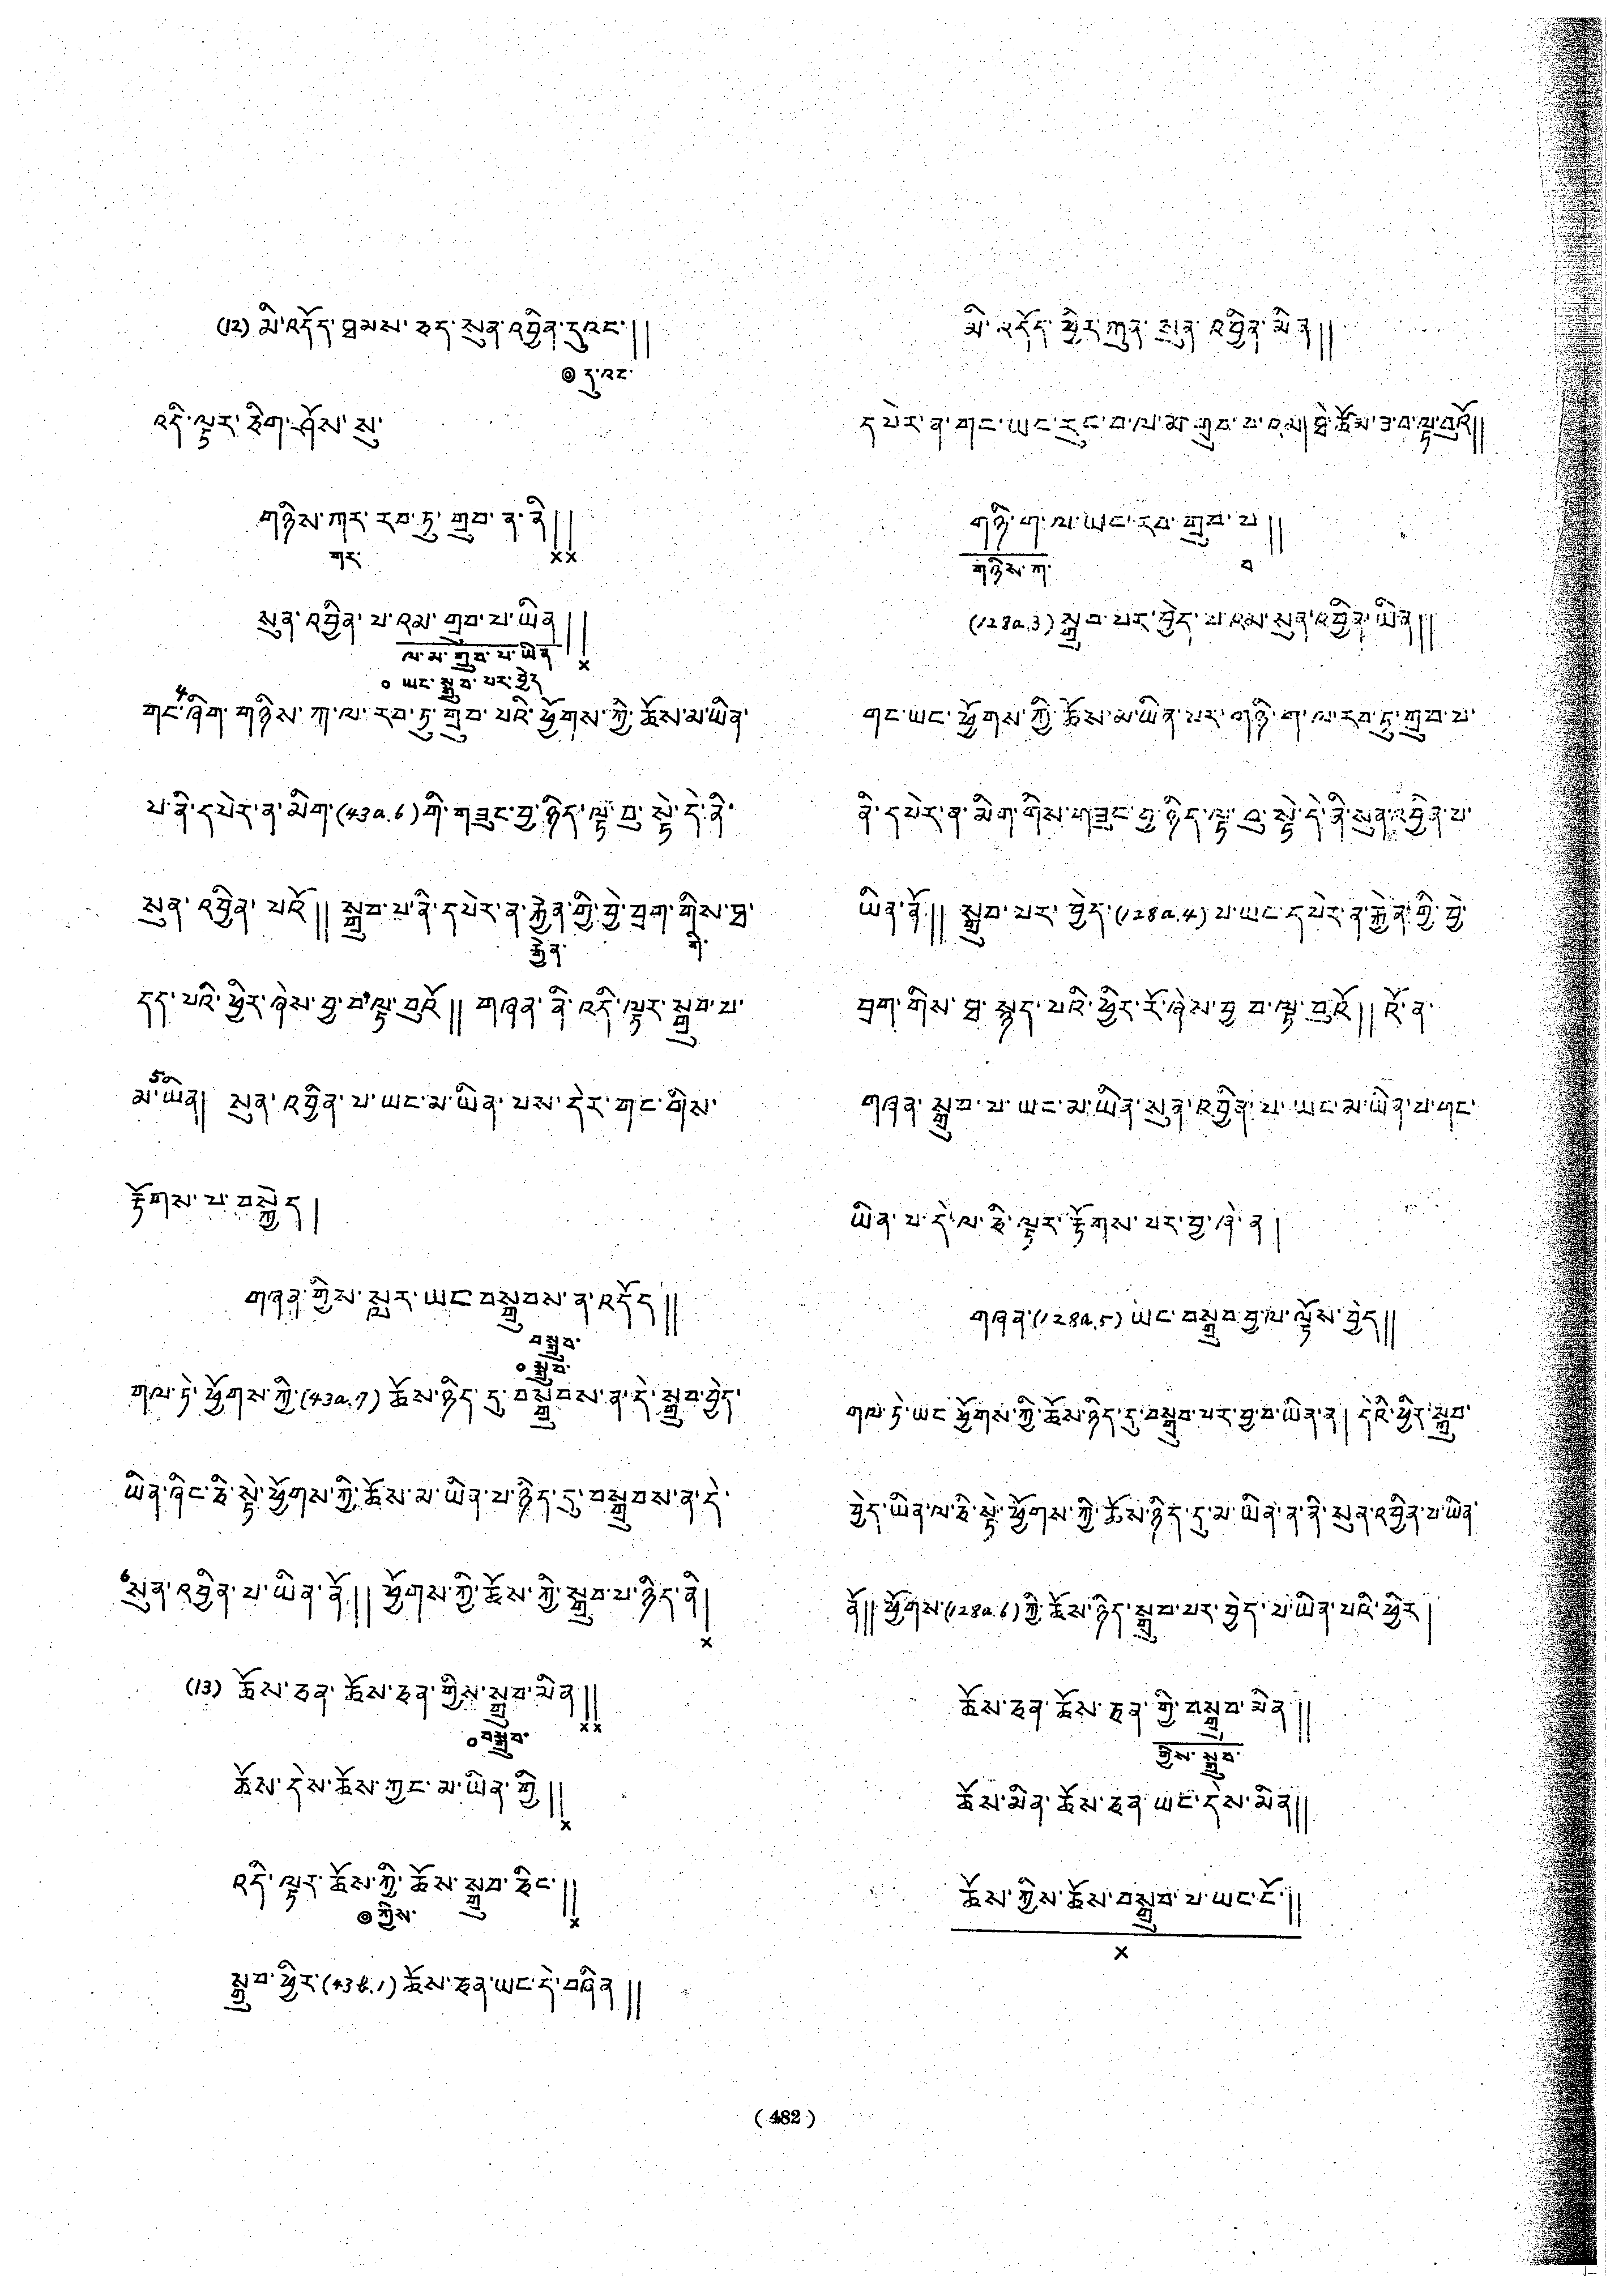 (12) མི་འདོད་ཐམས་ཅད་སུན་འབྱིན་དུའང་།།
◎ དུ་འང་
འདི་ལྟར་རྩིག་ཤོས་སུ་
གཉིས་ཀར་རབ་ཏུ་གྲུབ་ན་ནི།།
གར་ ××
སུན་འབྱིན་པ་འམ་གྲུབ་པ་ཡིན།།
ལ་མ་གྲུབ་པ་ཡིན ×
༠ ཡང་སྒྲུབ་པར་བྱེད
གང་4ཞིག་གཉིས་ཀ་ལ་རབ་ཏུ་གྲུབ་པའི་ཕྱོགས་ཀྱི་ཆོས་མ་ཡིན་
པ་ནི་དཔེར་ན་མིག་(43a.6)གི་གཟུང་བྱ་ཉིད་ལྟ་བུ་སྟེ་དེ་ནི་
སུན་འབྱིན་པའོ།། སྒྲུབ་པ་ནི་དཔེར་ན་རྐྱེན་གྱི་བྱེ་བྲག་གིས་ཐ་
རྐྱེན་ གི་
དད་པའི་ཕྱིར་ཞེས་བྱ་བ་ལྟ་བུའོ།། གཞན་ནི་འདི་ལྟར་སྒྲུབ་པ་
མ་5ཡིན། སུན་འབྱིན་པ་ཡང་མ་ཡིན་པས་དེར་གང་གིས་
རྟོགས་པ་བསྐྱེད།
གཞན་གྱིས་སླར་ཡང་བསྒྲུབས་ན་འདོད།།
བསྒྲུབ་
༠ སྒྲུབ་
གལ་ཏེ་ཕྱོགས་ཀྱི་(43a.7) ཆོས་ཉིད་དུ་བསྒྲུབས་ན་དེ་སྒྲུབ་བྱེད་
ཡིན་ཞིང་ཅི་སྟེ་ཕྱོགས་ཀྱི་ཆོས་མ་ཡིན་པ་ཉིད་དུ་བསྒྲུབས་ན་དེ་
6སུན་འབྱིན་པ་ཡིན་ནོ།། ཕྱོགས་ཀྱི་ཆོས་ཀྱི་སྒྲུབ་པ་ཉིད་ནི།
×
(13) ཆོས་ཅན་ཆོས་ཅན་གྱིས་སྒྲུབ་མིན།།
༠བསྒྲུབ་ ××
ཆོས་དེས་ཆོས་ཀྱང་མ་ཡིན་གྱི།།
×
འདི་ལྟར་ཆོས་ཀྱི་ཆོས་སྒྲུབ་ཅིང་།།
◎ ཀྱིས་ ×
སྒྲུབ་ཕྱིར་(43b.1) ཆོས་ཅན་ཡང་དེ་བཞིན།།
མི་འདོད་ཕྱིར་ཀུན་སུན་འབྱིན་མིན།།
དཔེར་ན་གང་ཡང་རུང་བ་ལ་མ་གྲུབ་པ་འམ། ཐེ་ཚོམ་ཟ་བ་ལྟ་བུའོ།།
གཉི་ག་ལ་ཡང་རབ་གྲུབ་པ།།
གཉིས་ཀ་ བ
(128a.3) སྒྲུབ་པར་བྱེད་པ་འམ་སུན་འབྱིན་ཡིན།།
གང་ཡང་ཕྱོགས་ཀྱི་ཆོས་མ་ཡིན་པར་གཉི་ག་ལ་རབ་ཏུ་གྲུབ་པ་
ནི་དཔེར་ན་མིག་གིས་གཟུང་བྱ་ཉིད་ལྟ་བུ་སྟེ་དེ་ནི་སུན་འབྱིན་པ་
ཡིན་ནོ།། སྒྲུབ་པར་བྱེད་(128a.4) པ་ཡང་དཔེར་ན་རྐྱེན་གྱི་བྱེ་
བྲག་གིས་ཐ་སྙད་པའི་ཕྱིར་རོ་ཞེས་བྱ་བ་ལྟ་བུའོ།། འོ་ན་
གཞན་སྒྲུབ་པ་ཡང་མ་ཡིན་སུན་འབྱིན་པ་ཡང་མ་ཡིན་པ་གང་
ཡིན་པ་དེ་ལ་ཅི་ལྟར་རྟོགས་པར་བྱ་ཞེ་ན།
གཞན་(128a.5) ཡང་བསྒྲུབ་བྱ་ལ་ལྟོས་བྱེད།།
གལ་ཏེ་ཡང་ཕྱོགས་ཀྱི་ཆོས་ཉིད་དུ་བསྒྲུབ་པར་བྱ་བ་ཡིན་ན། དེའི་ཕྱིར་སྒྲུབ་
བྱེད་ཡིན་ལ་ཅི་སྟེ་ཕྱོགས་ཀྱི་ཆོས་ཉིད་དུ་མ་ཡིན་ན་ནི་སུན་འབྱིན་པ་ཡིན་
ནོ།། ཕྱོགས་(128a.6) ཀྱི་ཆོས་ཉིད་སྒྲུབ་པར་བྱེད་པ་ཡིན་པའི་ཕྱིར།
ཆོས་ཅན་ཆོས་ཅན་ཀྱི་བསྒྲུབ་མིན།།
ཀྱིས་སྒྲུབ་
ཆོས་མིན་ཆོས་ཅན་ཡང་དེས་མིན།།
ཆོས་ཀྱིས་ཆོས་བསྒྲུབ་པ་ཡང་ངོ་།།
×
( 482 )